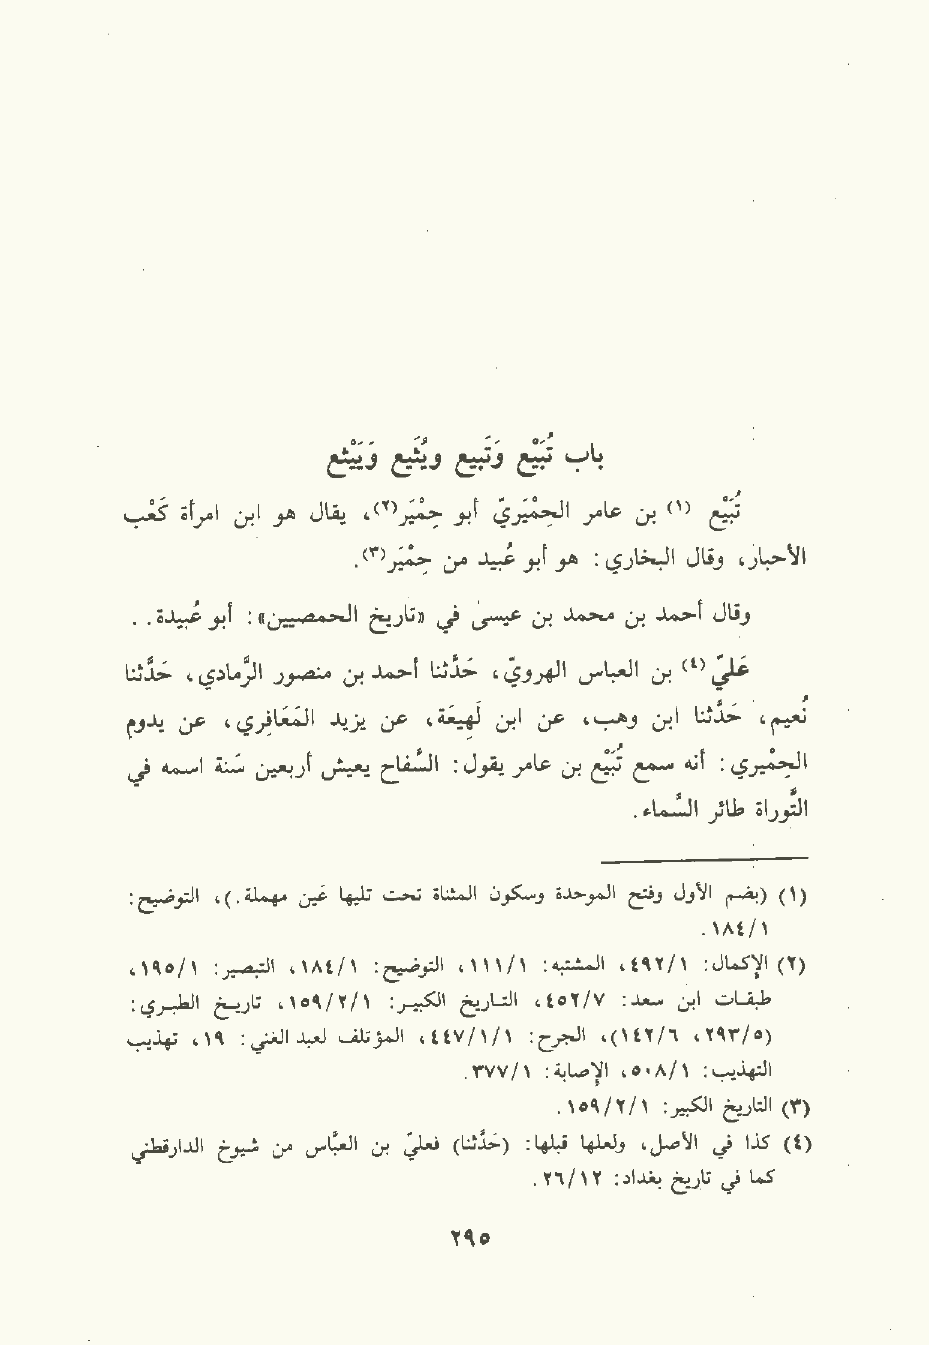 باب تُبَيْع وَتَبيع ويُثَيع وَيَيْثع
تُبَيْع (١) بن عامر الحِمْيَريّ أبو حِمْيَر(٢)، يقال هو ابن امرأة كَعْب
الأحبار، وقال البخاري: هو أبو عُبيد من حِمْيَر(٣).
وقال أحمد بن محمد بن عيسى في «تاريخ الحمصيين»: أبو عُبيدة. .
عَليّ(٤) بن العباس الهرويّ، حَدَّثنا أحمد بن منصور الرَّمادي، حَدَّثنا
نُعيم، حَدَّثنا ابن وهب، عن ابن لَهِيعَة، عن يزيد المَعَافِري، عن يدوم
الحِمْيري: أنه سمع تُبَيْع بن عامر يقول: السَّفاح يعيش أربعين سَنة اسمه في
التَّوراة طائر السَّماء.
(١) (بضم الأول وفتح الموحدة وسكون المثناة تحت تليها غين مهملة.)، التوضيح:
١/١٨٤.
(٢) الإكمال: ١/٤٩٢، المشتبه: ١/١١١، التوضيح: ١/١٨٤، التبصير: ١/١٩٥،
طبقات ابن سعد: ٧/٤٥٢، التاريخ الكبير: ١/٢/١٥٩، تاريخ الطبري:
(٥/٢٩٣، ٦/١٤٢)، الجرح: ١/١/٤٤٧، المؤتلف لعبد الغني: ١٩، تهذيب
التهذيب: ١/٥٠٨، الإصابة: ١/٣٧٧.
(٣) التاريخ الكبير: ١/٢/١٥٩.
(٤) كذا في الأصل، ولعلها قبلها: (حَدَّثنا) فعليّ بن العبَّاس من شيوخ الدارقطني
كما في تاريخ بغداد: ١٢/٢٦.
٢٩٥